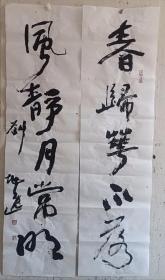 春歸華不落
風靜月常明